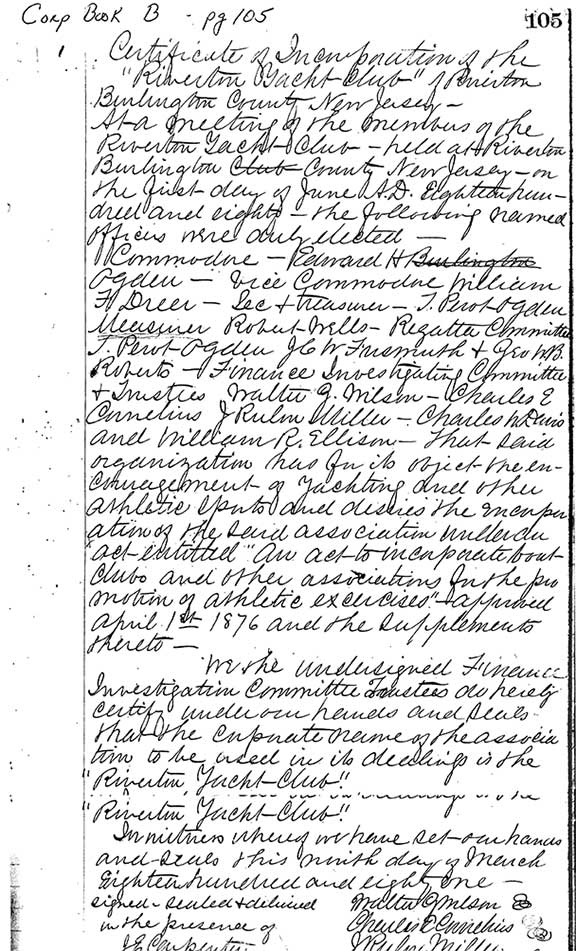 Corp Book B - pg 105
105
Certificate of Incorporation of the
"Riverton Yacht Club" of Riverton
Burlington County New Jersey -
At a meeting of the members of the
Riverton Yacht Club - held at Riverton
Burlington Club County New Jersey - on
the first day of June A.D. Eighteen hun-
dred and eighty - the following named
officers were duly elected —
Commodore - Edward H Burlington
Ogden - Vice Commodore William
F Dreer - Sec & Treasurer - J. Perot Ogden
Measurer Robert Wells - Regatta Committee
J. Perot Ogden J C W Frismuth & Geo W B.
Roberts - Finance Investigating Committee
& Trustees Walter G. Wilson - Charles E
Cornelius J Rulon Miller - Charles W Davis
and William R. Ellison - that said
organization has for its object the en-
couragement of Yachting and other
athletic sports and desires the incorpor
ation of the said association under an
act entitled "An act to incorporate boat
clubs and other associations for the pro
motion of athletic exercises" - approved
April 1st 1876 and the supplements
thereto —
We the undersigned Finance
Investigation Committee Trustees do hereby
certify under our hands and seals -
that the corporate name of the associa
tion to be used in its dealings is the
"Riverton Yacht Club"
"Riverton Yacht Club".
In witness whereof we have set our hands
and seals this ninth day of March
Eighteen hundred and eighty one -
signed - sealed & delivered Walter G Wilson
in the presence of Charles E Cornelius
J E Carpenter J Rulon Miller